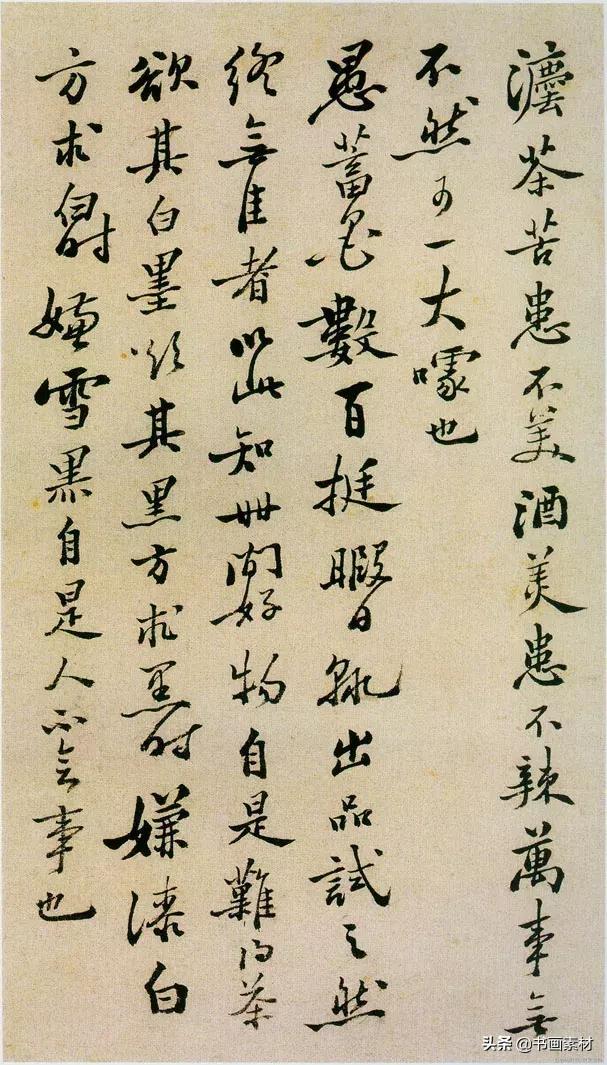 茶苦患不美酒美患不辣萬事無
不然可一大噱也
愚蓄墨數百挺暇日輒出品試之然
終無佳者以此知世間好物自是難得茶
欲其白墨欲其黑方求黑時嫌漆白
方求白時嫌雪黑自是人不會事也
头条 @书画素材